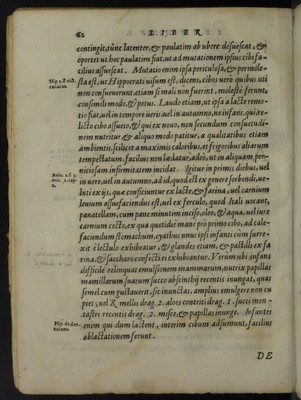 62 LIBER
contingit, tūne latenter, & paulatim ab ubere desuescat, &
oportet ut hoc paulatim fiat, ut ad mutationem ipsus cibi fa-
cilius assuescat. Mutatio enim ipsa periculosa, & permole-
sta est, ut Hippocrati uisum est, dicens, cibos uerò quibus uti
non consueuerunt, etiam si mali non fuerint, molestè ferunt,
consimili modo, & potus. Laudo etiam, ut ipsa à lacte remo-
tio fiat, uel in tempore ueris, uel in autumno, ne infans, qui, re-
licto cibo assueto, & qui ex nouo, non secundum consuetudi-
nem nutritur, & aliquo modo patitur, à qualitatibus etiam
ambientis, scilicet à maximis caloribus, et frigoribus aliarum
tempestatum, facilius non lædatur, adeò, ut in aliquam per-
niciosam infirmitatem incidat. Igitur in primis diebus, uel
in uere, uel in autumno, ad id, quod est ex genere sorbendi, ue-
luti ex ijs, quæ conficiuntur ex lacte, & farina, uel carnium
leuium assuefaciendus est, uel ex ferculo, quod Itali uocant,
panatellam, cum pane minutim inciso, oleo, & aqua, uel iure
carnium cocto, ex qua quotidie mane prò primo cibo, ad cale-
faciendum stomachum, cyathus unus ipsi infanti cùm surre-
xit è lectulo exhibeatur, & glandes etiam, & pastilli ex fa
rina, & saccharo confecti ei exhibeantur. Verùm ubi infans
difficilè relinquat emulsionem mammarum, nutrix papillas
mamillarum suarum succo absinthij recentis inungat, quas
semel cum gustauerit, sic inunctas, amplius emulgere non cu
piet, uel R mellis drag. 2. aloes contriti drag. 1. succi men-
tastri recentis drag. 2. misce, & papillas inunge. Infantes
enim qui dum lactent, interim cibum adsumunt, facilius
ablactationem ferunt.
DE
Hip.
Auic.
Hip. de den
titione.